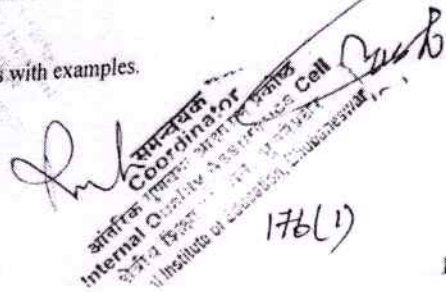 s with examples.
समन्वयक
Coordinator
आंतरिक गुणवत्ता आश्वासन प्रकोष्ठ
Internal Quality Assurance Cell
क्षेत्रीय शिक्षा
Institute of Education, Bhubaneswar
176(1)